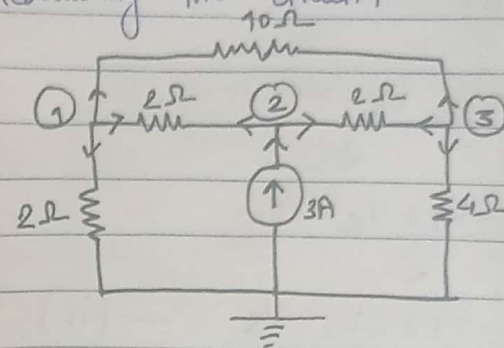 the
10Ω
① 2Ω ② 2Ω ③
2Ω 3A 4Ω